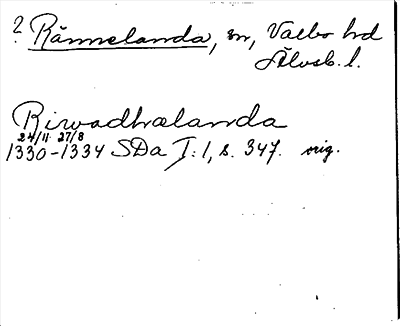 ? Rännelanda, sn, Valbo hd
Älvsb. l.
Rirvadhælanda
24/11 27/8
1330-1334 SDa I:1, s. 347. orig.